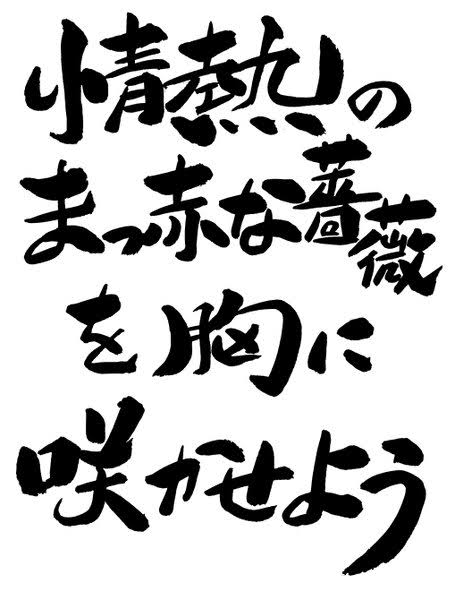 情熱の
まっ赤な薔薇
を胸に
咲かせよう